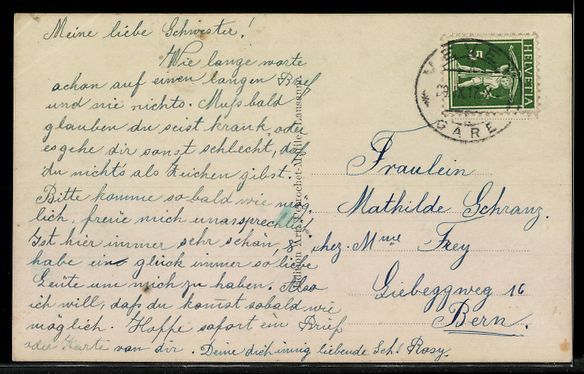 Meine liebe Schwester!
Wie lange warte
achon auf einen langen Brief
und nie nichts. Mußs bald
glauben du seist krank, oder
es gehe dir sonst schlecht, daß
du nichts als Zeichen gibst.
Bitte komme so bald wie mög
lich, freue mich unassprechlich.
Ist hier immer sehr schön, &
habe ein glück immer so liebe
Leute um mich zu haben. Also
ich will, daß du komst sobald wie
möglich. Hoffe sofort ein Brief
oder Karte von dir. Deine dich innig liebende Schs. Rosy.
HELVETIA
5
GARE
Fraulein
Mathilde Schranz.
chez. Mme Frey
Liebeggweg 16
Bern.